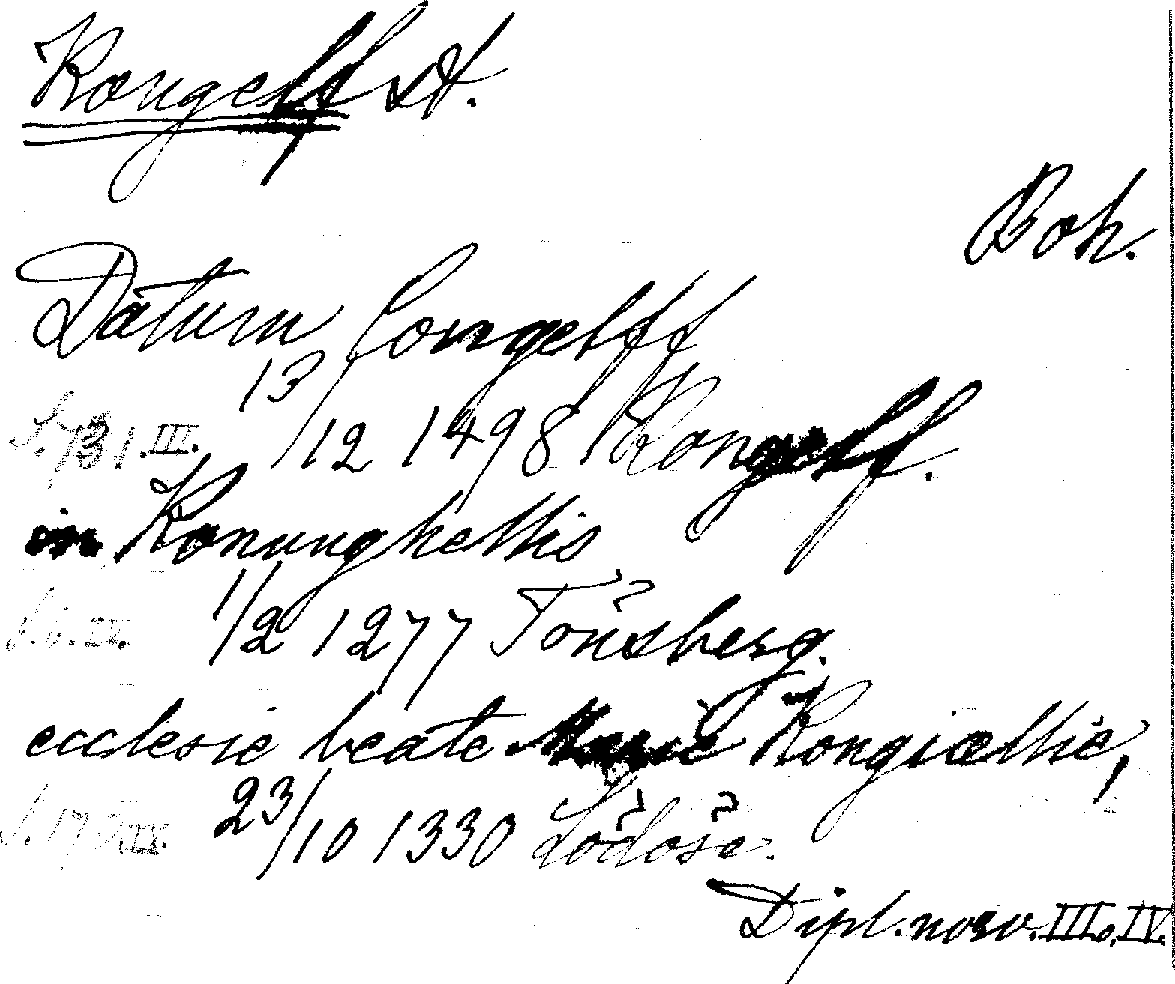 Kongelf st.
Boh.
Datum Congelff
S. 731. III. 13/12 1498 Kongelf.
in Konunghellis
S. 6. IV. 1/2 1277 Tönsberg.
ecclesie beate Marie Kongiællie,
23/10 1330 Lödöse.
Dipl. norv. III o, IV.